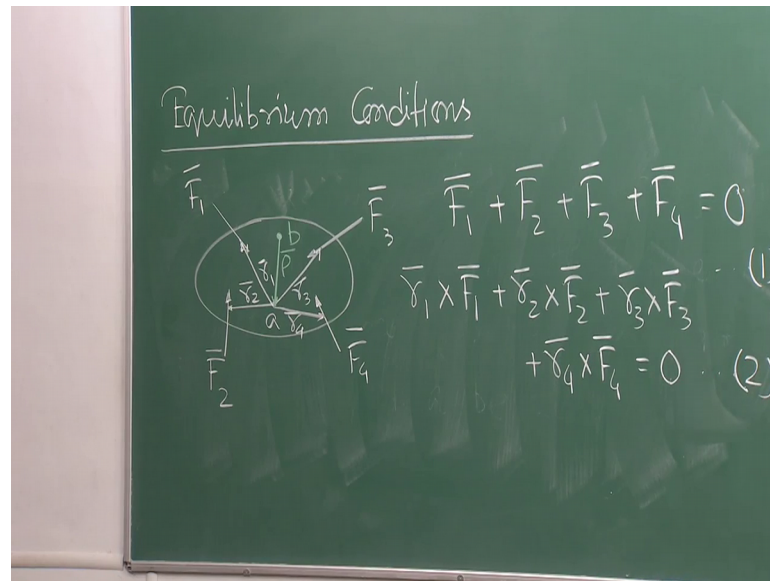 Equilibrium Conditions
F̄₁
F̄₃
F̄₂
F̄₄
b
ρ̄
r̄₁
r̄₂
r̄₃
a
r̄₄
F̄₁ + F̄₂ + F̄₃ + F̄₄ = 0
.. (1)
r̄₁ × F̄₁ + r̄₂ × F̄₂ + r̄₃ × F̄₃
+ r̄₄ × F̄₄ = 0 .. (2)